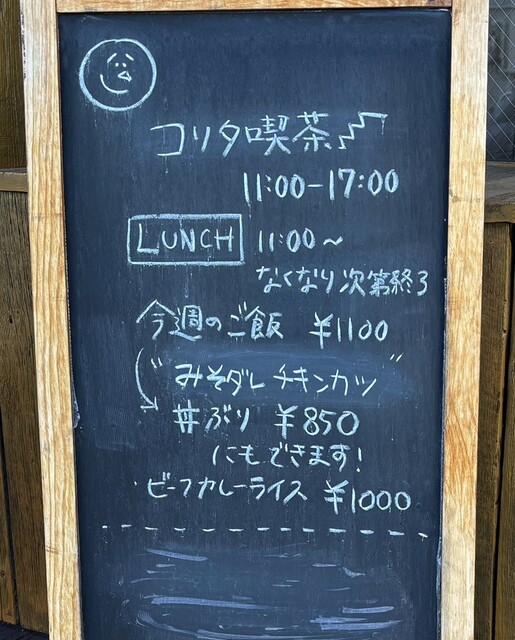 コリタ喫茶
11:00-17:00
LUNCH 11:00~
なくなり次第終了
今週のご飯 ¥1100
"みそダレチキンカツ"
丼ぶり ¥850
にもできます!
・ビーフカレーライス ¥1000